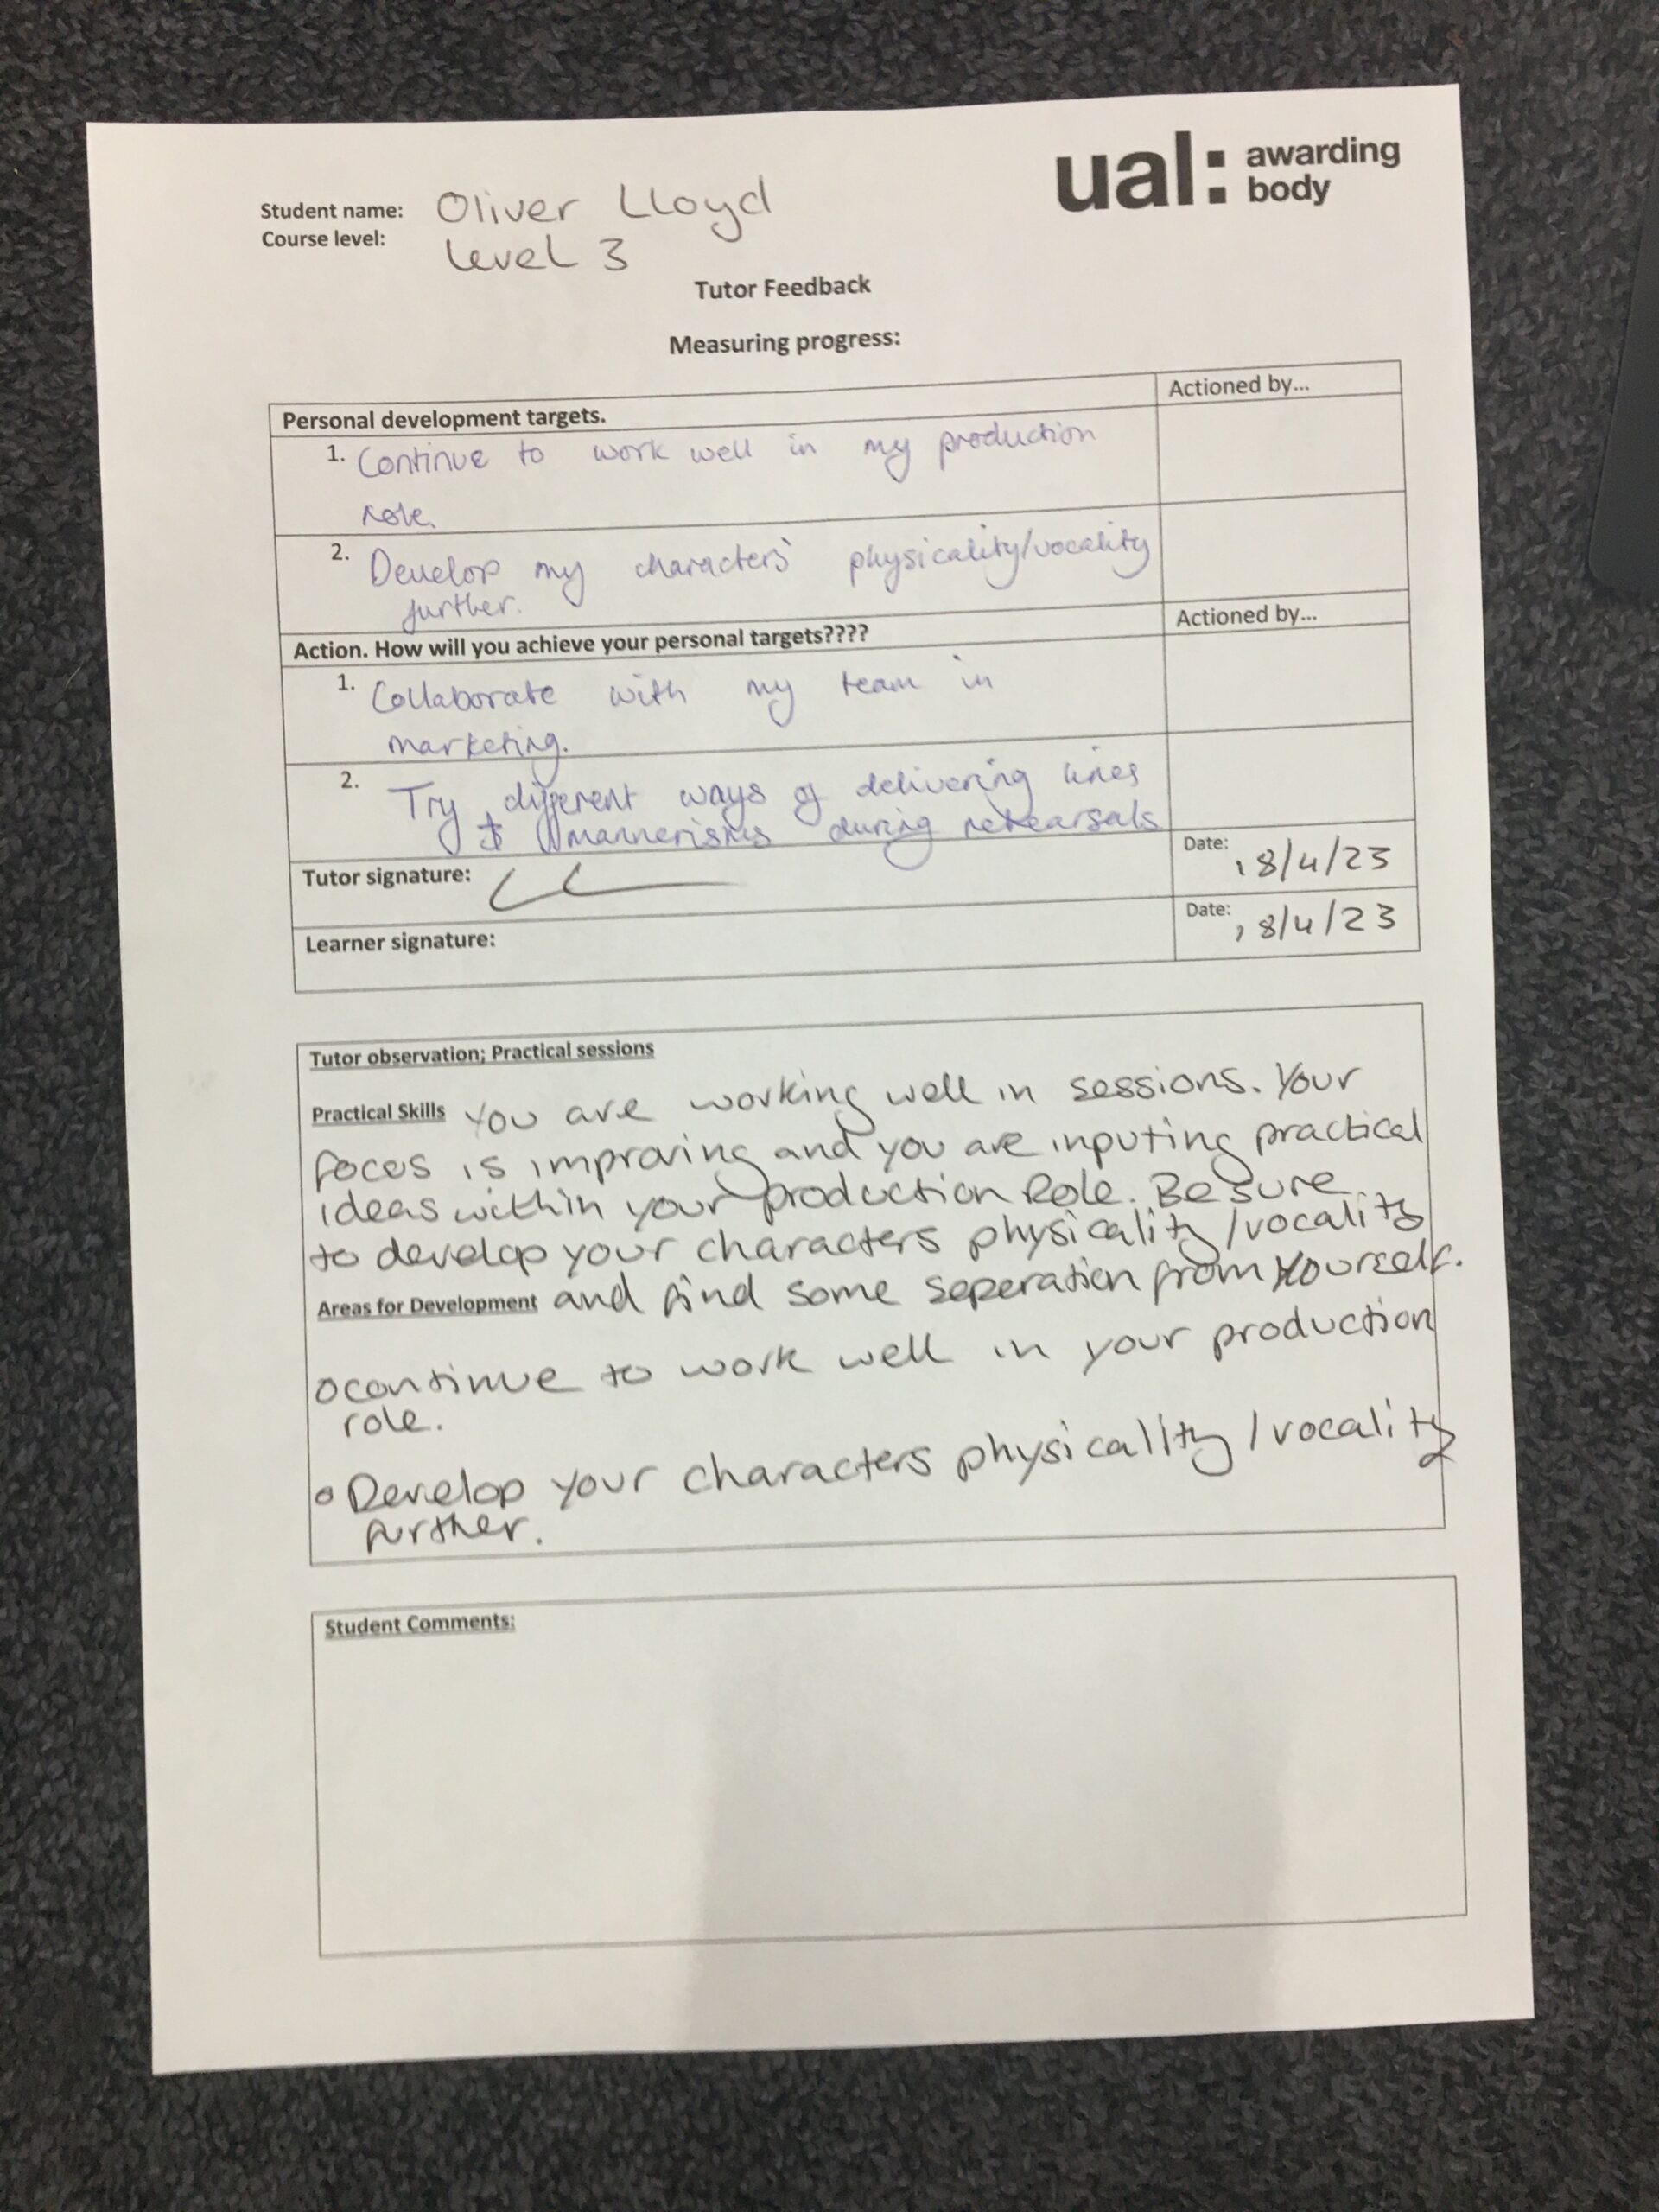 ual: awarding
body
Student name: Oliver Lloyd
Course level: Level 3
Tutor Feedback
Measuring progress:
Personal development targets. Actioned by...
1. Continue to work well in my production
role.
2. Develop my characters' physicality/vocality
further.
Action. How will you achieve your personal targets???? Actioned by...
1. Collaborate with my team in
marketing.
2. Try different ways of delivering lines
& mannerisms during rehearsals
Tutor signature: Date: 18/4/23
Learner signature: Date: 18/4/23
Tutor observation; Practical sessions
Practical Skills You are working well in sessions. Your
focus is improving and you are inputing practical
ideas within your production Role. Be sure
to develop your characters physicality/vocality
Areas for Development and find some seperation from yourself.
o continue to work well in your production
role.
o Develop your characters physicality/vocality
further.
Student Comments: